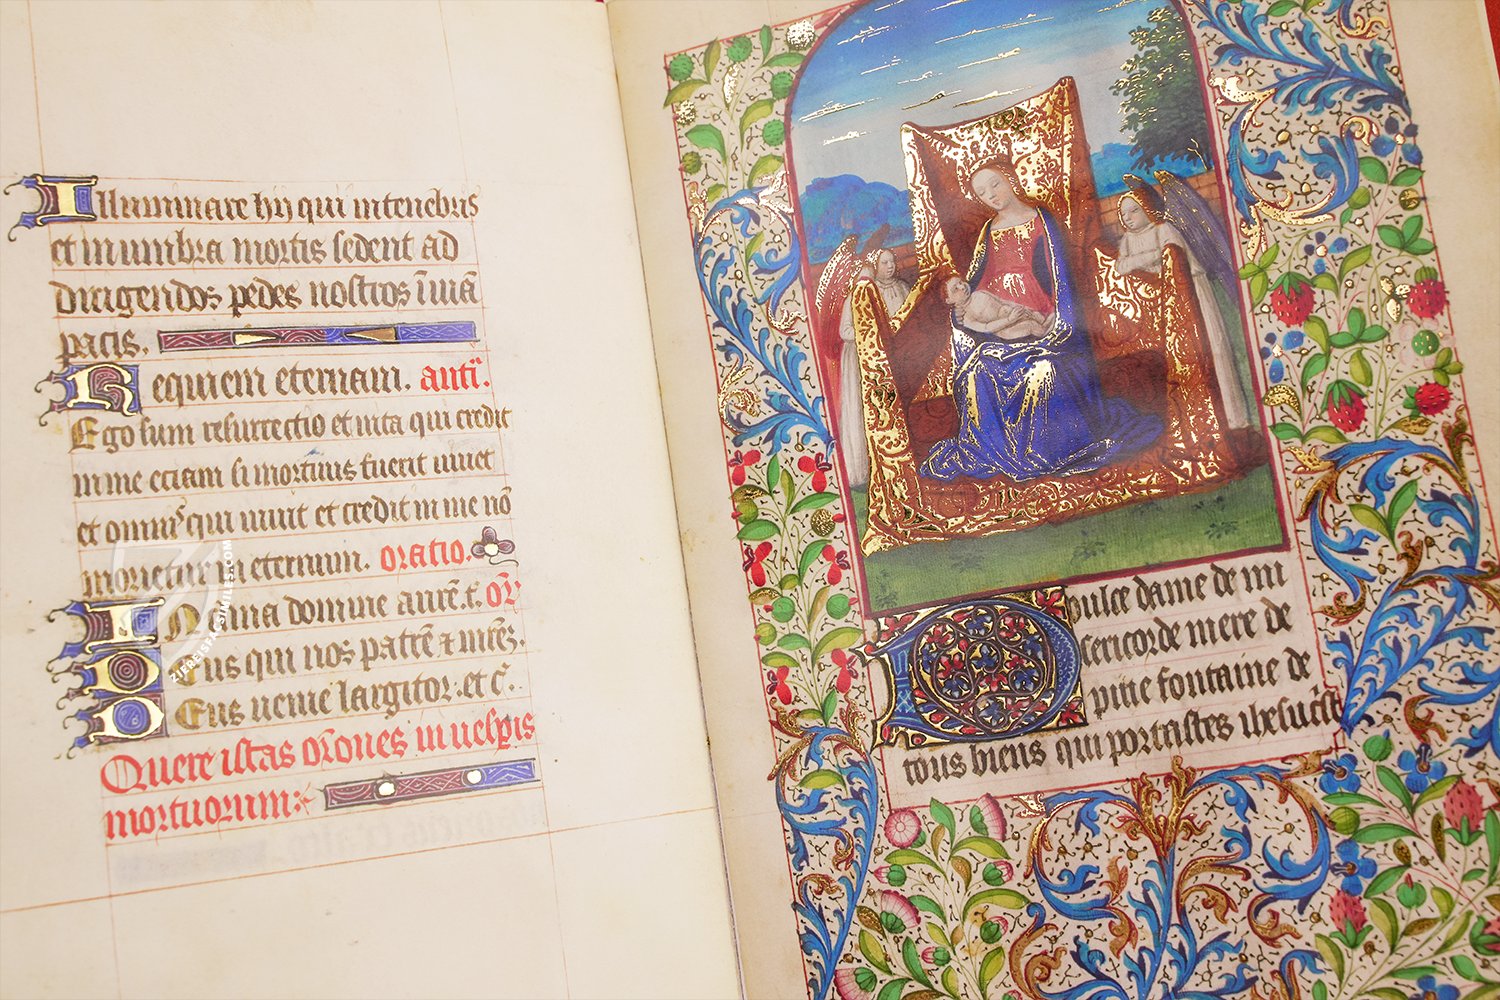 Illuminare hÿ qui in tenebris
et in umbra mortis sedent ad
dirigendos pedes nostros ī viā
pacis.
Requiem eternam. antī.
Ego sum resurrectio et vita qui credit
in me eciam si mortuus fuerit vivet
et omnis qui vivit et credit in me nō
morietur in eternum. oratio.
Inclina domine aurē. t. or̄
Deus qui nos patrē & matrē.
Deus venie largitor. et c̄.
Quere istas orōnes in vesperis
mortuorum:
ZIEREISFACSIMILES.COM
Doulce dame de mi
sericorde mere de
pitie fontaine de
tous biens qui portastes ihesucrist